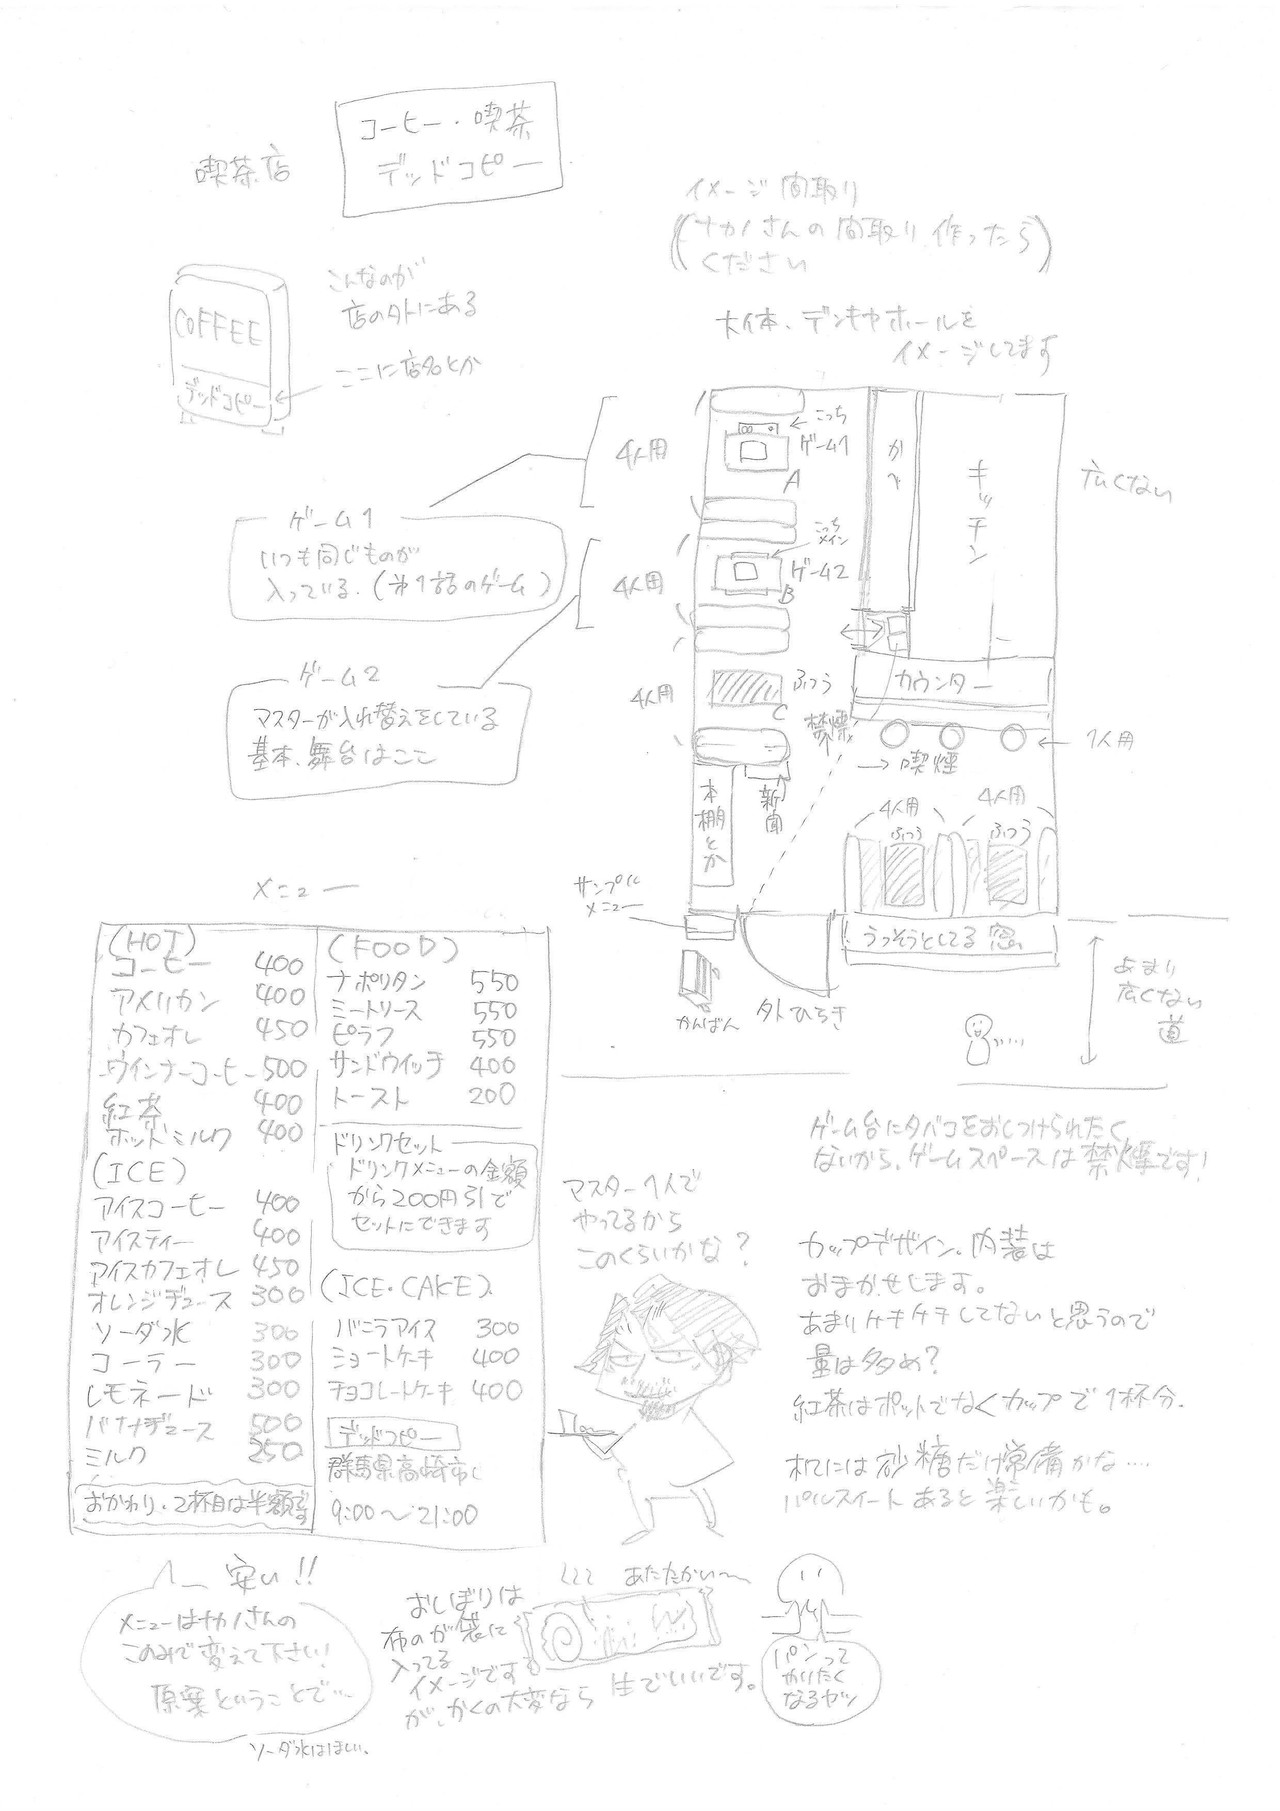 喫茶店
コーヒー・喫茶
デッドコピー
イメージ間取り
(ナカノさんの間取り作ったら
ください)
大体、デンキヤホールを
イメージしてます
COFFEE
デッドコピー
こんなのが
店の外にある
ここに店名とか
4人用
こっち
ゲーム1
A
かべ
キッチン
広くない
ゲーム1
いつも同じものが
入っている。(第1話のゲーム)
4人用
こっち
メイン
ゲーム2
B
ゲーム2
マスターが入れ替えをしている
基本、舞台はここ
4人用
ふつう
C
カウンター
禁煙
→喫煙
1人用
本棚とか
新聞
4人用
4人用
ふつう
ふつう
サンプル
メニュー
うっそうとしてる窓
かんばん
外ひらき
あまり
広くない
道
メニュー
(HOT)
コーヒー 400
アメリカン 400
カフェオレ 450
ウインナーコーヒー 500
紅茶 400
ホットミルク 400
(ICE)
アイスコーヒー 400
アイスティー 400
アイスカフェオレ 450
オレンジヂュース 300
ソーダ水 300
コーラー 300
レモネード 300
バナナヂュース 500
ミルク 250
おかわり・2杯目は半額です
(FOOD)
ナポリタン 550
ミートソース 550
ピラフ 550
サンドウイッチ 400
トースト 200
ドリンクセット
ドリンクメニューの金額
から200円引で
セットにできます
(ICE・CAKE)
バニラアイス 300
ショートケーキ 400
チョコレートケーキ 400
デッドコピー
群馬県高崎市
9:00〜21:00
ゲーム台にタバコをおしつけられたく
ないから、ゲームスペースは禁煙です!
マスター1人で
やってるから
このくらいかな?
カップデザイン、内装は
おまかせします。
あまりケチケチしてないと思うので
量は多め?
紅茶はポットでなくカップで1杯分.
机には砂糖だけ常備かな....
パルスイートあると楽しいかも。
安い!!
メニューはナカノさんの
このみで変えて下さい!
原案ということで…
ソーダ水はほしい.
おしぼりは
布のが袋に
入ってる
イメージです
が、かくの大変なら 生でいいです。
あたたかい〜
パンって
やりたく
なるヤツ